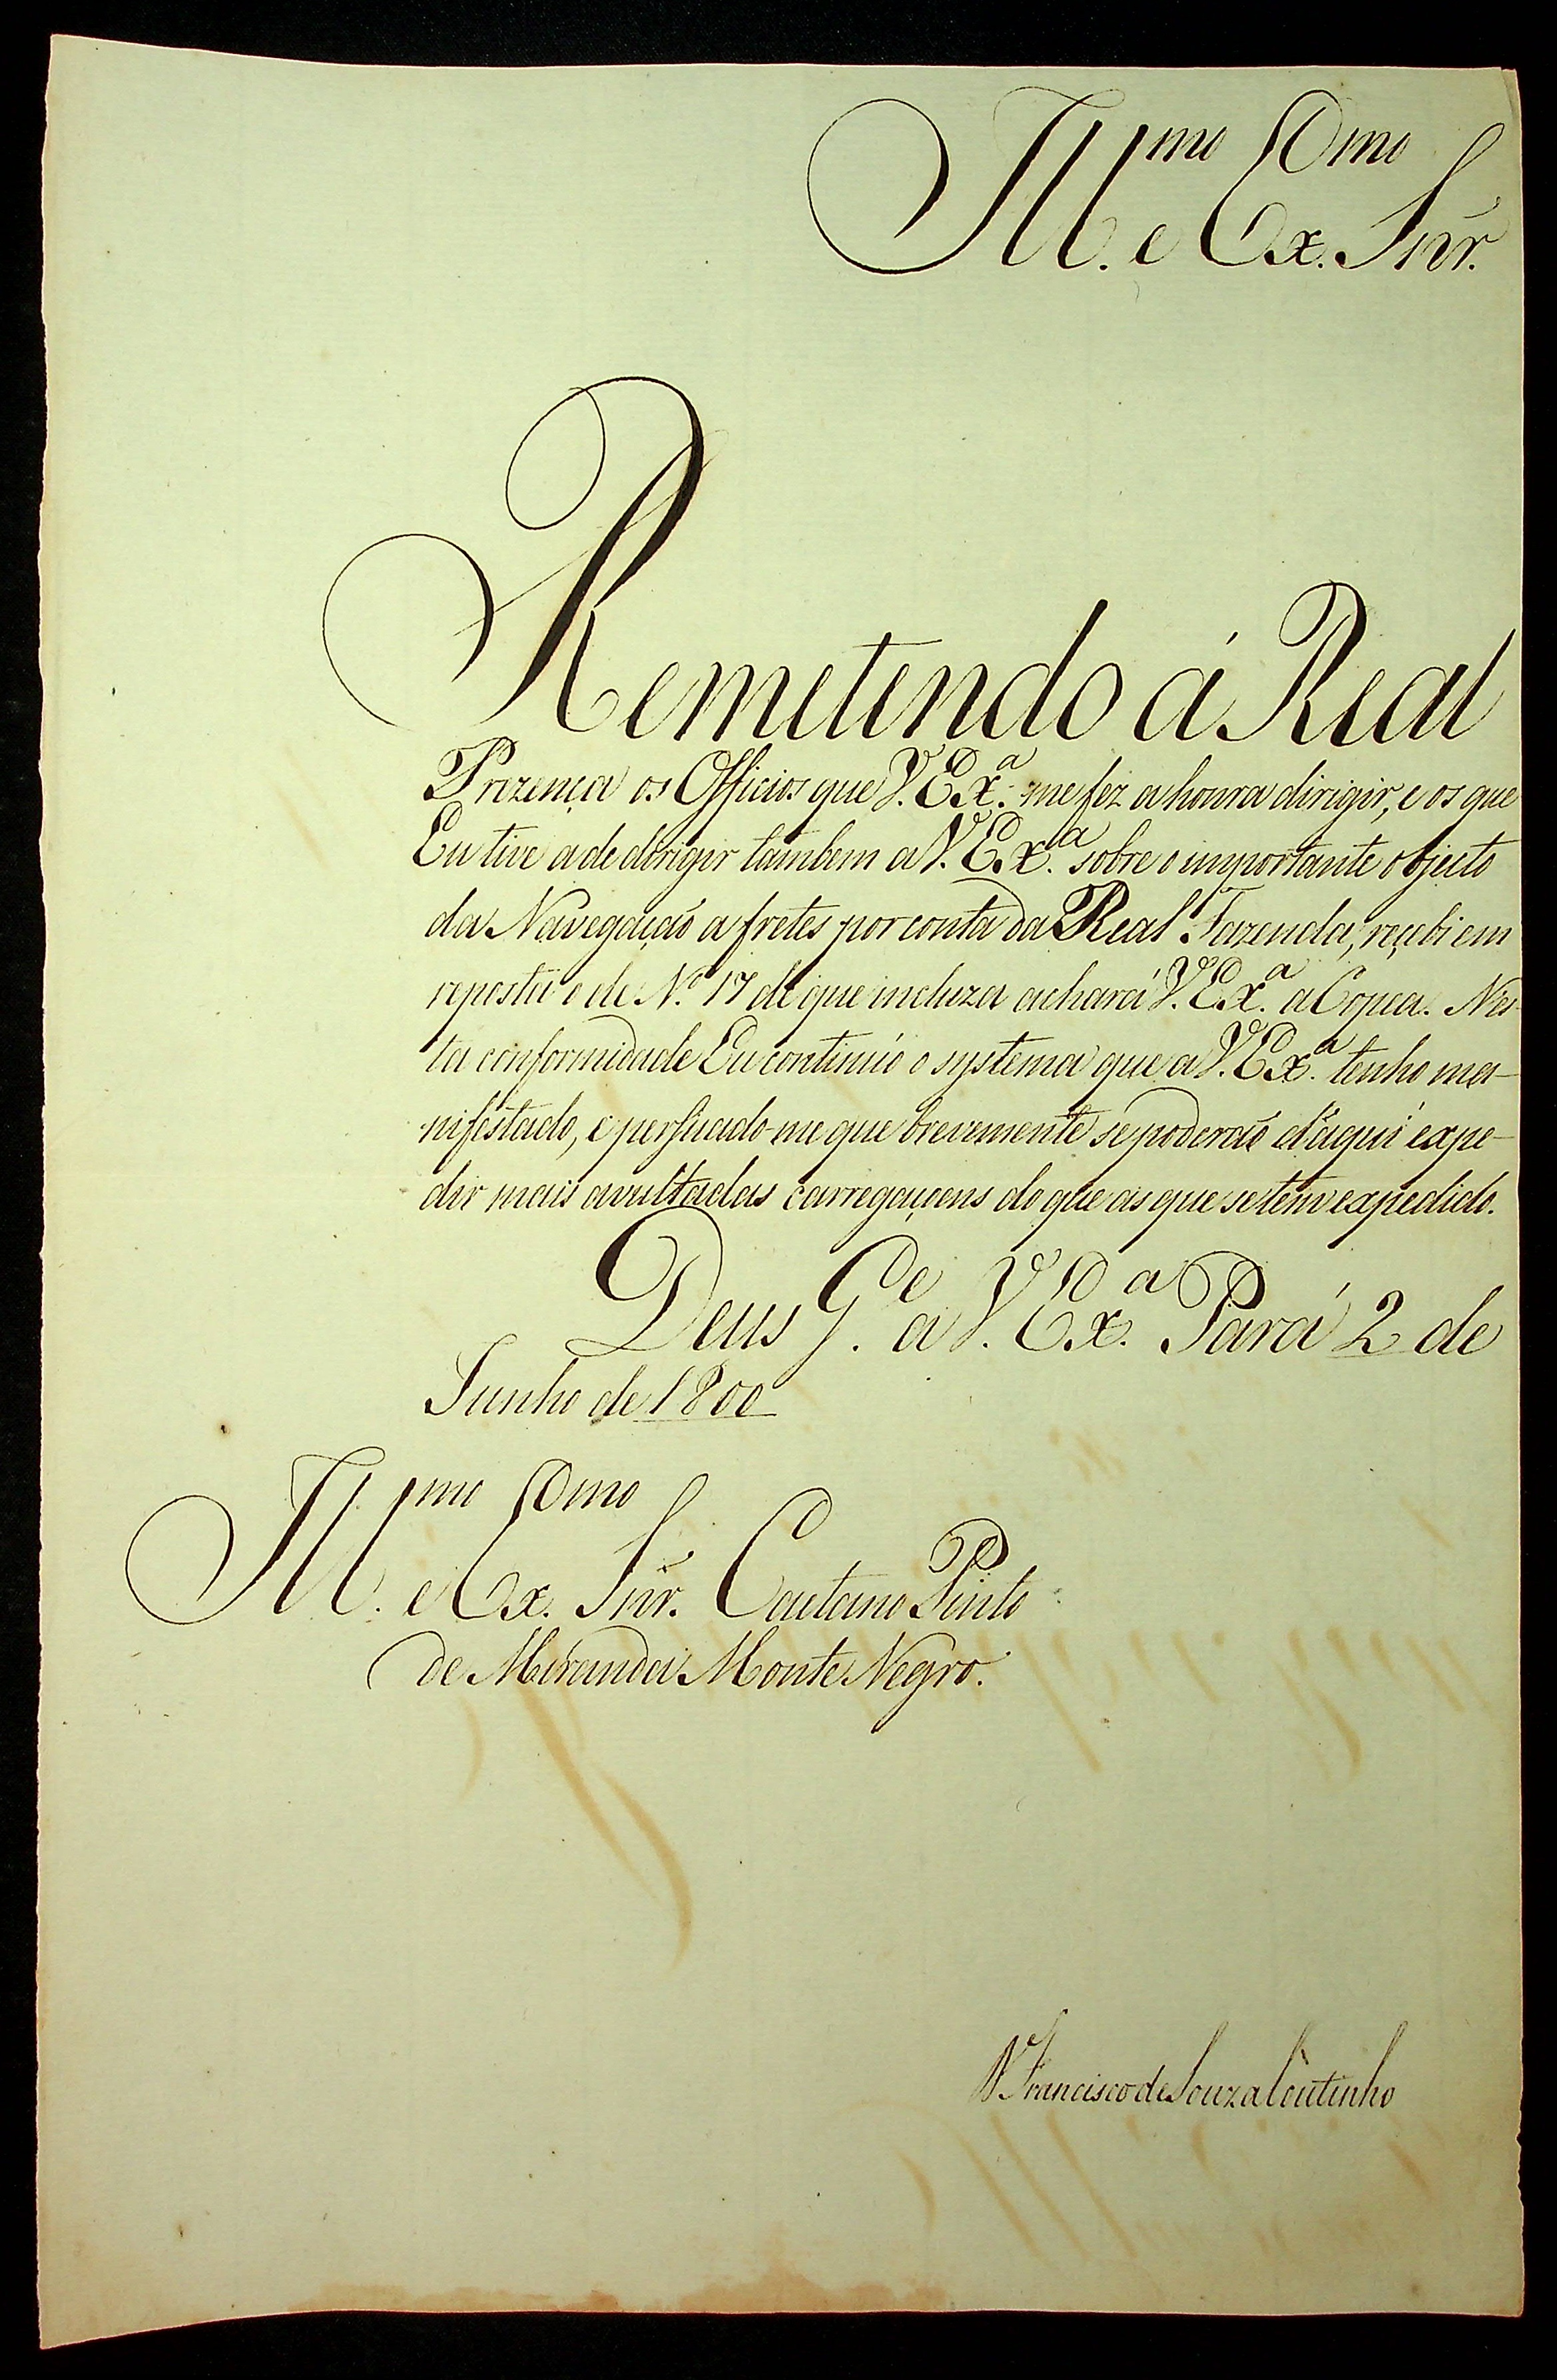 Ill.mo e Ex.mo Snr.
Remetendo á Real
Prezença os Officios que V. Ex.a me fez a honra dirigir, e os que
Eu tive a de dirigir tambem a V. Ex.a sobre o importante objecto
da Navegação a fretes por conta da Real Fazenda, reçebi em
reposta o de N.o 17 de que incluza achará V. Ex.a a Copea. Nes-
ta conformidade Eu continúo o systema que a V. Ex.a tenho ma-
nifestado, e persuado-me que brevemente se poderão d'aqui expe-
dir mais avultadas carregaçoens do que as que se tem expedido.
Deus G.e a V. Ex.a Pará 2 de
Junho de 1800
Ill.mo e Ex.mo Snr. Caetano Pinto
de Miranda Monte Negro.
D. Francisco de Souza Coutinho